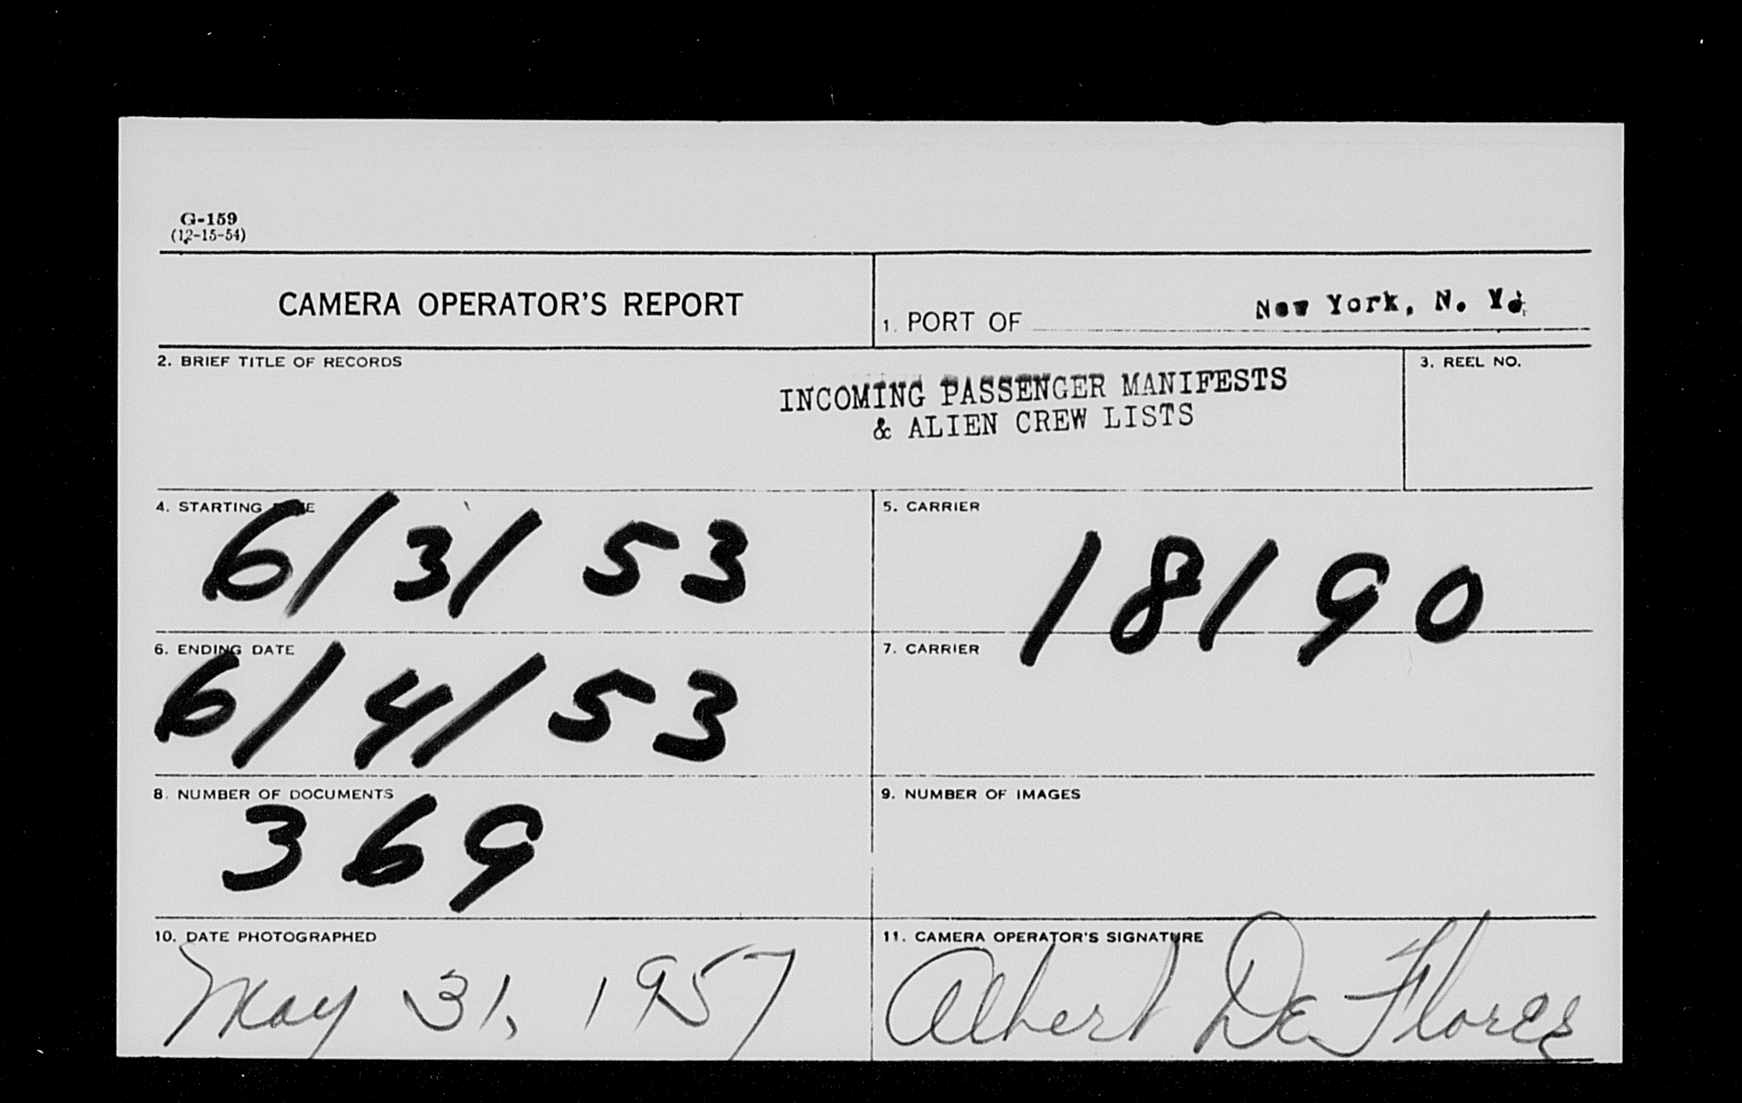 G-159
(12-15-54)
CAMERA OPERATOR'S REPORT
1. PORT OF New York, N. Y.
2. BRIEF TITLE OF RECORDS
INCOMING PASSENGER MANIFESTS
& ALIEN CREW LISTS
3. REEL NO.
4. STARTING DATE
6/3/53
5. CARRIER
18190
6. ENDING DATE
6/4/53
7. CARRIER
8. NUMBER OF DOCUMENTS
369
9. NUMBER OF IMAGES
10. DATE PHOTOGRAPHED
May 31, 1957
11. CAMERA OPERATOR'S SIGNATURE
Albert De Flores